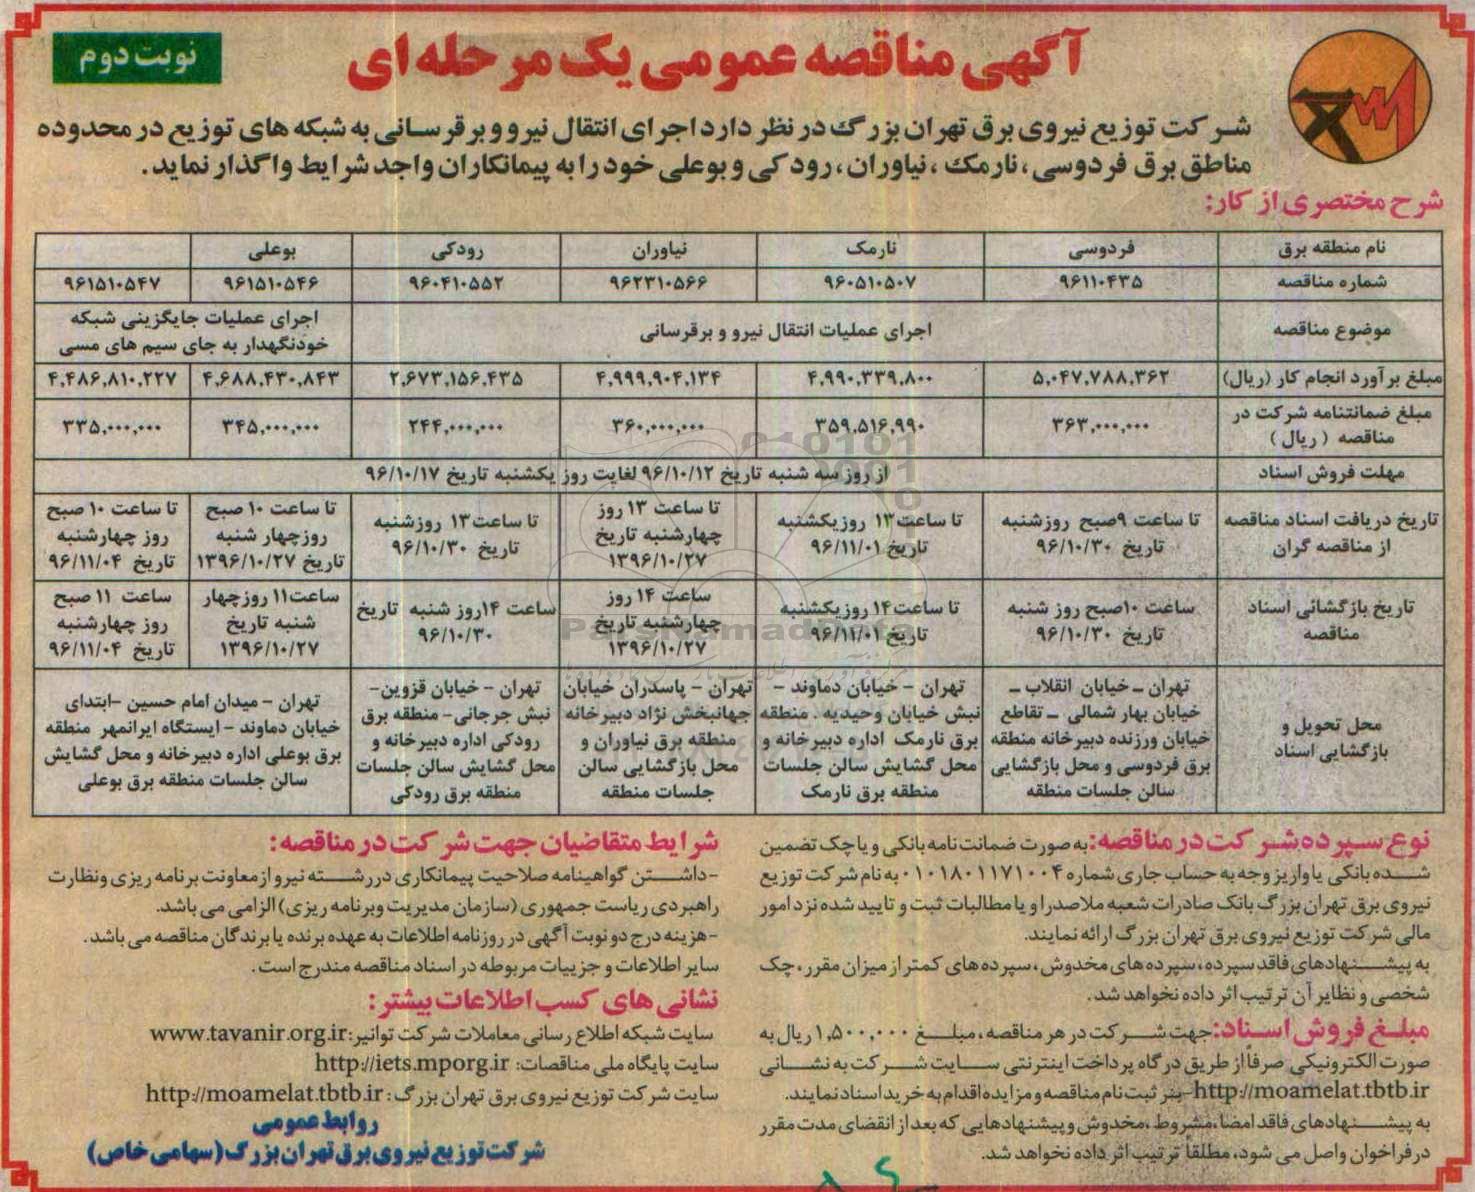 نوبت دوم
آگهی مناقصه عمومی یک مرحله ای
شرکت توزیع نیروی برق تهران بزرگ در نظر دارد اجرای انتقال نیرو و برقرسانی به شبکه های توزیع در محدوده
مناطق برق فردوسی، نارمک، نیاوران، رودکی و بوعلی خود را به پیمانکاران واجد شرایط واگذار نماید.
شرح مختصری از کار:
نام منطقه برق فردوسی نارمک نیاوران رودکی بوعلی
شماره مناقصه ۹۶۱۱۰۴۳۵ ۹۶۰۵۱۰۵۰۷ ۹۶۲۳۱۰۵۶۶ ۹۶۰۴۱۰۵۵۲ ۹۶۱۵۱۰۵۴۶ ۹۶۱۵۱۰۵۴۷
موضوع مناقصه اجرای عملیات انتقال نیرو و برقرسانی
اجرای عملیات جایگزینی شبکه
خودنگهدار به جای سیم های مسی
مبلغ برآورد انجام کار (ریال) ۵,۰۴۷,۷۸۸,۳۶۲ ۴,۹۹۰,۳۳۹,۸۰۰ ۴,۹۹۹,۹۰۴,۱۳۴ ۲,۶۷۳,۱۵۶,۴۳۵ ۴,۶۸۸,۴۳۰,۸۴۳ ۴,۴۸۶,۸۱۰,۲۲۷
مبلغ ضمانتنامه شرکت در
مناقصه (ریال)
۳۶۳,۰۰۰,۰۰۰ ۳۵۹,۵۱۶,۹۹۰ ۳۶۰,۰۰۰,۰۰۰ ۲۴۴,۰۰۰,۰۰۰ ۳۴۵,۰۰۰,۰۰۰ ۳۳۵,۰۰۰,۰۰۰
مهلت فروش اسناد از روز سه شنبه تاریخ ۹۶/۱۰/۱۲ لغایت روز یکشنبه تاریخ ۹۶/۱۰/۱۷
تاریخ دریافت اسناد مناقصه
از مناقصه گران
تا ساعت ۹صبح روزشنبه
تاریخ ۹۶/۱۰/۳۰
تا ساعت ۱۳ روزیکشنبه
تاریخ ۹۶/۱۱/۰۱
تا ساعت ۱۳ روز
چهارشنبه تاریخ
۱۳۹۶/۱۰/۲۷
تا ساعت۱۳ روزشنبه
تاریخ ۹۶/۱۰/۳۰
تا ساعت ۱۰ صبح
روزچهار شنبه
تاریخ ۱۳۹۶/۱۰/۲۷
تا ساعت ۱۰ صبح
روز چهارشنبه
تاریخ ۹۶/۱۱/۰۴
تاریخ بازگشائی اسناد
مناقصه
ساعت ۱۰صبح روز شنبه
تاریخ ۹۶/۱۰/۳۰
تا ساعت۱۴ روزیکشنبه
تاریخ ۹۶/۱۱/۰۱
ساعت ۱۴ روز
چهارشنبه تاریخ
۱۳۹۶/۱۰/۲۷
ساعت ۱۴روز شنبه تاریخ
۹۶/۱۰/۳۰
ساعت۱۱ روزچهار
شنبه تاریخ
۱۳۹۶/۱۰/۲۷
ساعت ۱۱ صبح
روز چهارشنبه
تاریخ ۹۶/۱۱/۰۴
محل تحویل و
بازگشایی اسناد
تهران – خیابان انقلاب –
خیابان بهار شمالی – تقاطع
خیابان ورزنده دبیرخانه منطقه
برق فردوسی و محل بازگشایی
سالن جلسات منطقه
تهران – خیابان دماوند –
نبش خیابان وحیدیه . منطقه
برق نارمک اداره دبیرخانه و
محل گشایش سالن جلسات
منطقه برق نارمک
تهران – پاسدران خیابان
جهانبخش نژاد دبیرخانه
منطقه برق نیاوران و
محل بازگشایی سالن
جلسات منطقه
تهران – خیابان قزوین–
نبش جرجانی– منطقه برق
رودکی اداره دبیرخانه و
محل گشایش سالن جلسات
منطقه برق رودکی
تهران – میدان امام حسین –ابتدای
خیابان دماوند – ایستگاه ایرانمهر منطقه
برق بوعلی اداره دبیرخانه و محل گشایش
سالن جلسات منطقه برق بوعلی
ParsNamadData
نوع سپرده شرکت در مناقصه: به صورت ضمانت نامه بانکی و یا چک تضمین
شده بانکی یا واریز وجه به حساب جاری شماره ۰۱۰۱۸۰۱۱۷۱۰۰۴ به نام شرکت توزیع
نیروی برق تهران بزرگ بانک صادرات شعبه ملاصدرا و یا مطالبات ثبت و تایید شده نزد امور
مالی شرکت توزیع نیروی برق تهران بزرگ ارائه نمایند.
به پیشنهادهای فاقد سپرده، سپرده های مخدوش، سپرده های کمتر از میزان مقرر، چک
شخصی و نظایر آن ترتیب اثر داده نخواهد شد.
مبلغ فروش اسناد: جهت شرکت در هر مناقصه، مبلغ ۱,۵۰۰,۰۰۰ ریال به
صورت الکترونیکی صرفاً از طریق درگاه پرداخت اینترنتی سایت شرکت به نشانی
http://moamelat.tbtb.ir–بنر ثبت نام مناقصه و مزایده اقدام به خرید اسناد نمایند.
به پیشنهادهای فاقد امضا، مشروط، مخدوش و پیشنهادهایی که بعد از انقضای مدت مقرر
در فراخوان واصل می شود، مطلقاً ترتیب اثر داده نخواهد شد.
شرایط متقاضیان جهت شرکت در مناقصه:
–داشتن گواهینامه صلاحیت پیمانکاری در رشته نیرو از معاونت برنامه ریزی ونظارت
راهبردی ریاست جمهوری (سازمان مدیریت وبرنامه ریزی) الزامی می باشد.
–هزینه درج دو نوبت آگهی در روزنامه اطلاعات به عهده برنده یا برندگان مناقصه می باشد.
سایر اطلاعات و جزییات مربوطه در اسناد مناقصه مندرج است.
نشانی های کسب اطلاعات بیشتر:
سایت شبکه اطلاع رسانی معاملات شرکت توانیر: www.tavanir.org.ir
سایت پایگاه ملی مناقصات: http://iets.mporg.ir
سایت شرکت توزیع نیروی برق تهران بزرگ: http://moamelat.tbtb.ir
روابط عمومی
شرکت توزیع نیروی برق تهران بزرگ (سهامی خاص)